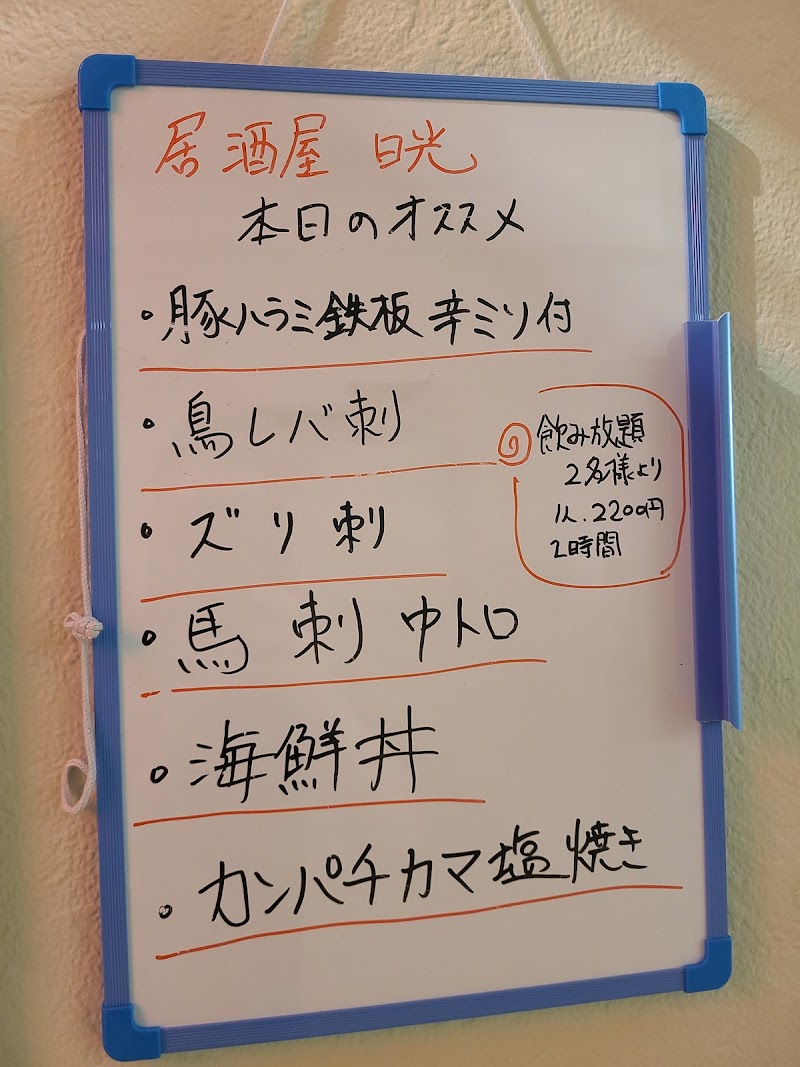 居酒屋 日光
本日のオススメ
・豚ハラミ鉄板 辛ミソ付
・鳥レバ刺
・ズリ刺
・馬刺 中トロ
・海鮮丼
・カンパチカマ塩焼き
飲み放題
2名様より
1人.2200円
2時間